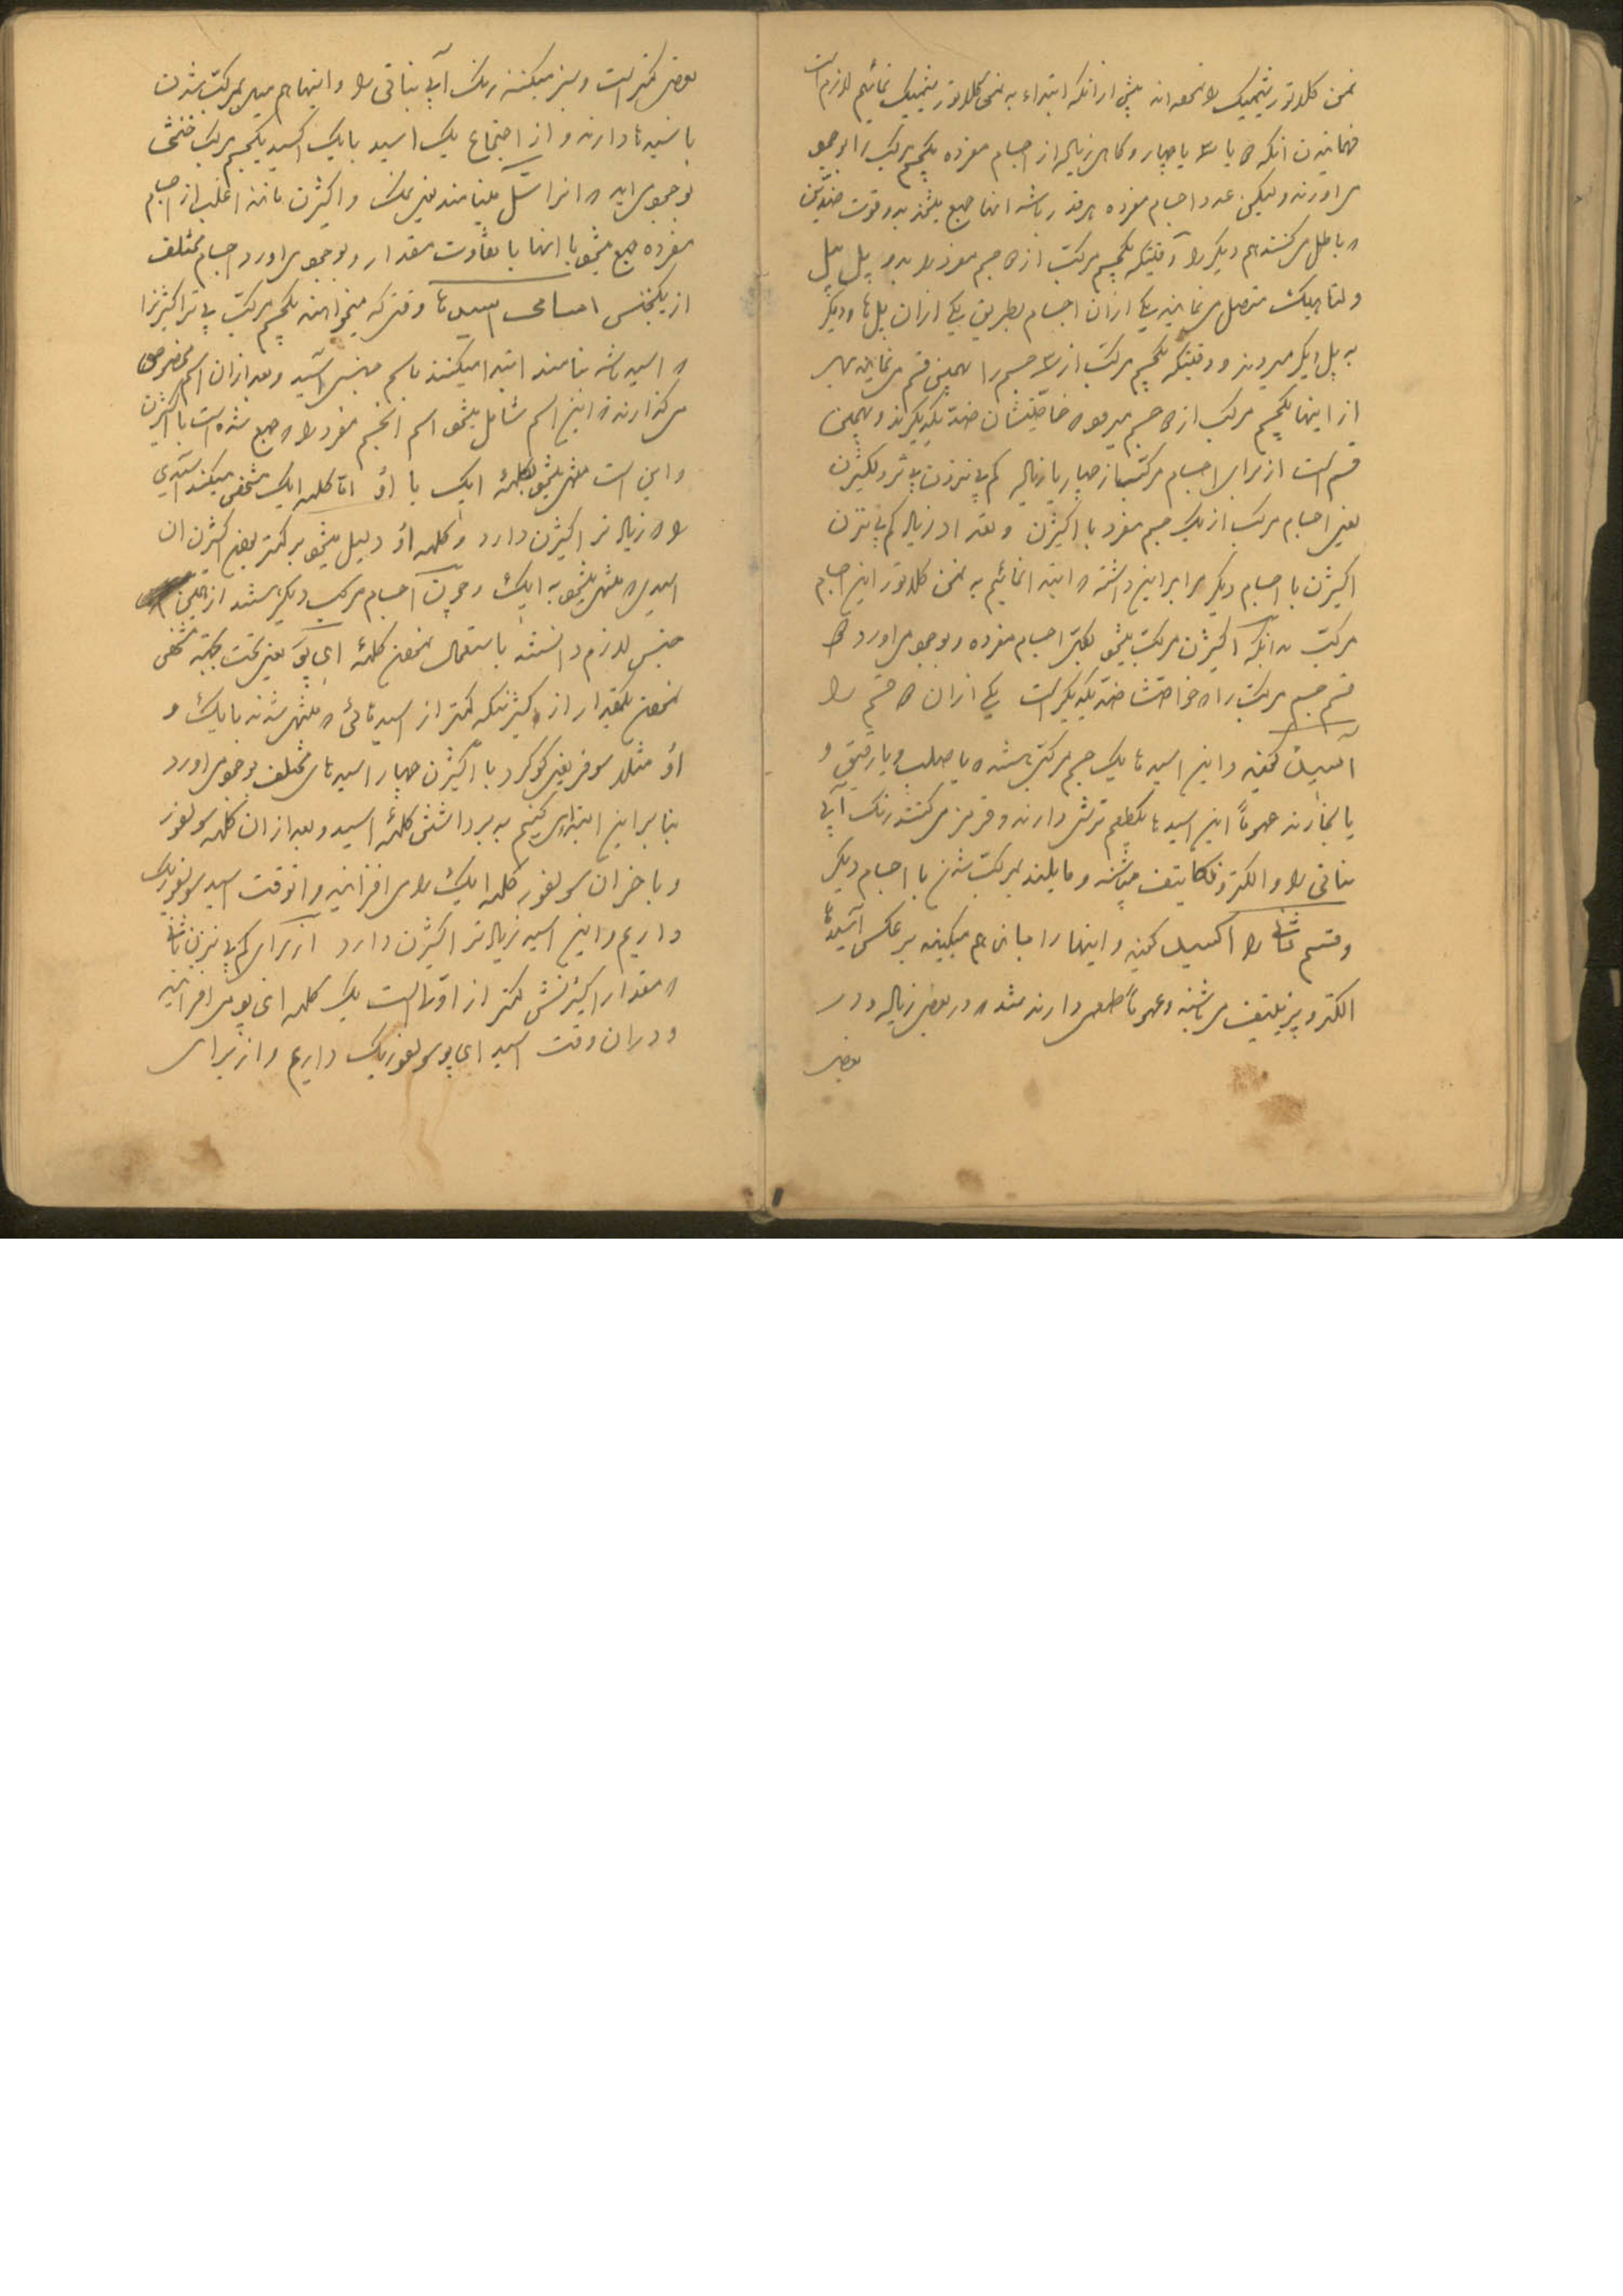 نمن کلاتور شیمیک را نموده اند پیش از انکه ابتداء به نمن کلاتور شیمیک نمائیم لازم است
فهمانیدن انکه ۲ یا ۳ یا چهار و کاهی زیاد از اجسام مفرده یکجسم مرکب را بوجود
می اورند ولیکن عدد اجسام مفرده هر قدر باشد انها جمع میشوند به دو قوت ضدین
که باطل می کنند هم دیکر را وقتیکه یکجسم مرکب از ۲ جسم مفرد را به دو پل پیل
ولتا هیک متصل می نمایند یکی از ان اجسام بطریق یکی از ان پل ها و دیکر
به پل دیکر میروند و وقتیکه یکجسم مرکب از ۳ جسم را همچنین قسم می نمایند هر
از اینها یکجسم مرکب از ۲ جسم میرود که خاصیتشان ضد یکدیکرند و همچنین
قسم است از برای اجسام مرکب از چهار یا زیاد کم پزیزون تر ولیکن
یعنی اجسام مرکب از یک جسم مفرد با اکیژن و تعداد زیاد کم
اکیژن با اجسام دیکر ما را بر این داشته که ابتدا نمائیم به نمن کلاتور این اجسام
مرکب بدانکه اکیژن مرکب میشود بکل اجسام مفرده و بوجود می اورد ۲
قسم جسم مرکب را که خواصشان ضد یکدیکر است یکی از ان ۲ قسم را
آسید کفته و این اسید ها یک جسم مرکب شده یا صلب و یا رقیق و
یا بخارند عموماً این اسید ها یکطعم ترش دارند و قرمز می کنند رنک آبی
نباتی را و الکترونکاتیف میباشند و مایلند بمرکب شدن با اجسام دیکر
و قسم ثانی را اکسید کفته و اینها را مبانی هم میکویند بر عکس آسیدها
الکتروپزیتیف می باشند و عموماً طعمی دارند تند که در بعضی زیاد و در
بعضی
بعضی کمتر است و سبز میکنند رنک آبی نباتی را و اینها هم میل بمرکب شدن
با اسید ها دارند و از اجتماع یک اسید با یک اکسید یکجسم مرکب خنثی
بوجود می اید که انرا سل مینامند یعنی نمک و اکیژن مانند اغلب از اجسام
مفرده جمع میشود با انها با تفاوت مقدار و بوجود می اورد اجسام مختلف
از یکجنس اسامی اسیدها وقتی که میخواهند یکجسم مرکب اکیژنرا
که اسید باشد بنامند ابتدا میکنند باسم جنس آسید و بعد از ان اسم مخصوص
می کذارند که این اسم شامل میشود اسم انجسم مفرد را که جمع شده است با اکیژن
و این است منتهی میشود بکلمهٔ ایک یا اؤ اما کلمه ایک مشخص میکند اسیدی
را که زیاد تر اکیژن دارد و کلمه اؤ دلیل میشود بر کمتر بودن اکیژن ان
اسیدی که منتهی میشود به ایک و چون اجسام مرکب دیکر هستند از همین
جنس لازم دانسته باستعمال نمودن کلمهٔ ای پو یعنی تحت بجهته مشخص
نمودن مقدار از اکیژنیکه کمتر از اسید هائی که منتهی شدند با یک و
اؤ مثلا سوفر یعنی کوکرد با اکیژن چهار اسید های مختلف بوجود می اورد
بنابراین ابتدا می کنیم به برداشتن کلمهٔ اسید و بعد از ان کلمه سولفور
و با خر ان سولفور کلمه ایک را می افزائیم و انوقت اسید سولفوریک
داریم و این اسید زیاد تر اکیژن دارد از برای
که مقدار اکیژنش کمتر از اولا است یک کلمه ای پو می افزائیم
و در ان وقت اسید ای پو سولفوریک داریم و از برای